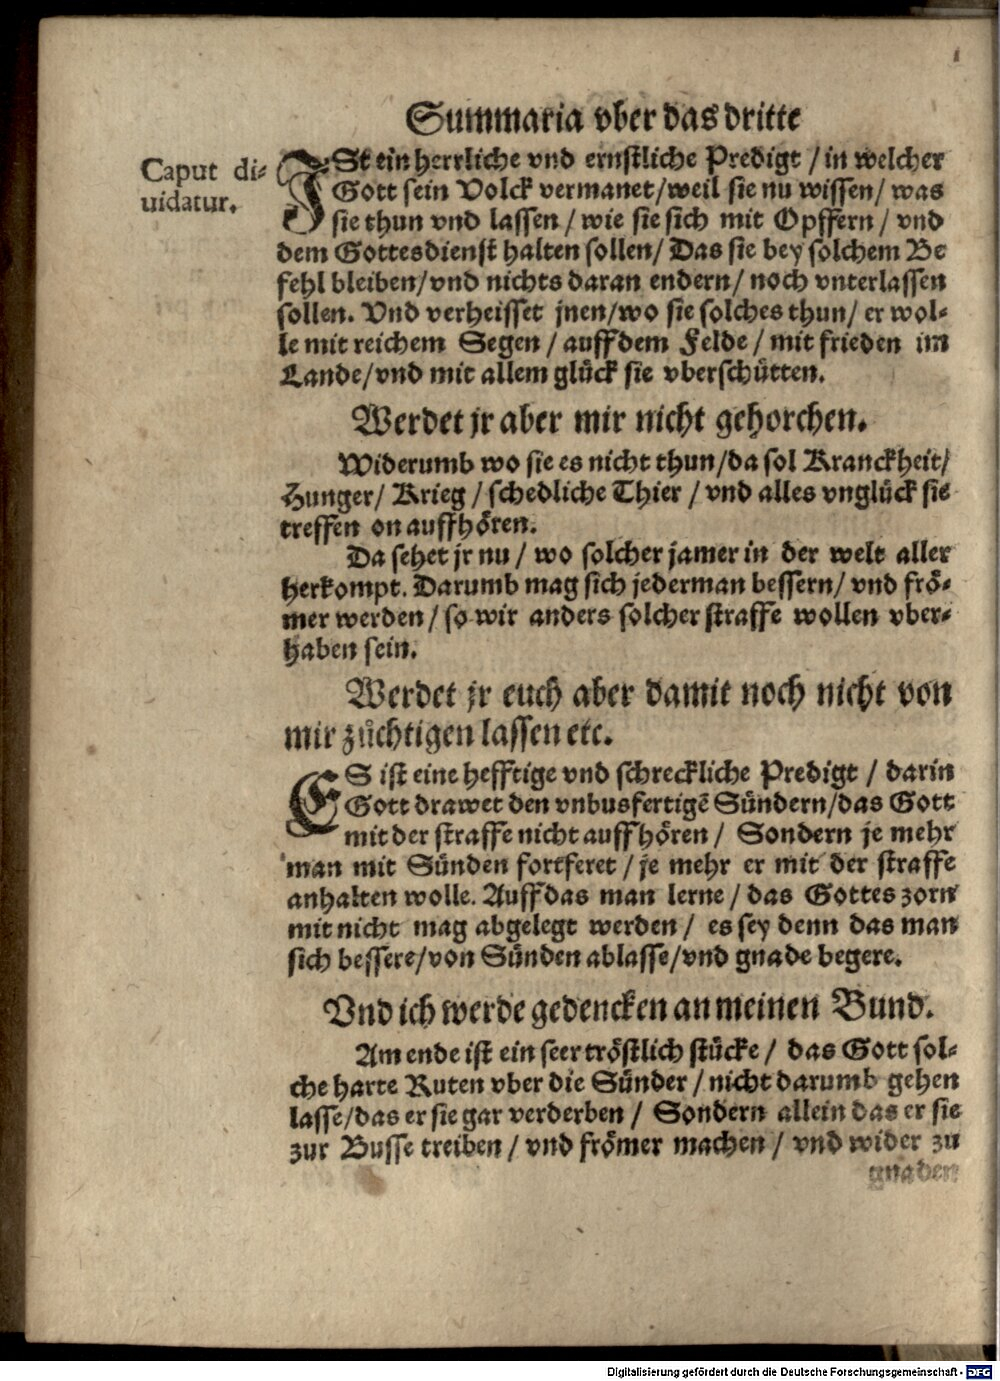 Summaria vber das dritte
Caput di-
uidatur.
ISt ein herrliche vnd ernstliche Predigt / in welcher
Gott sein Volck vermanet/weil sie nu wissen/ was
sie thun vnd lassen / wie sie sich mit Opffern / vnd
dem Gottesdienst halten sollen/ Das sie bey solchem Be
fehl bleiben/vnd nichts daran endern/ noch vnterlassen
sollen. Vnd verheisset jnen/wo sie solches thun/ er wol-
le mit reichem Segen / auff dem Felde / mit frieden im
Lande/vnd mit allem glück sie vberschütten.
Werdet jr aber mir nicht gehorchen.
Widerumb wo sie es nicht thun/da sol Kranckheit/
Hunger/ Krieg / schedliche Thier / vnd alles vnglück sie
treffen on auffhören.
Da sehet jr nu / wo solcher jamer in der welt aller
herkompt. Darumb mag sich jederman bessern/ vnd frö-
mer werden / so wir anders solcher straffe wollen vber-
haben sein.
Werdet jr euch aber damit noch nicht von
mir züchtigen lassen etc.
ES ist eine hefftige vnd schreckliche Predigt / darin
Gott drawet den vnbusfertigē Sündern/das Gott
mit der straffe nicht auffhören / Sondern je mehr
man mit Sünden fortferet / je mehr er mit der straffe
anhalten wolle. Auff das man lerne / das Gottes zorn
mit nicht mag abgelegt werden / es sey denn das man
sich bessere/von Sünden ablasse/vnd gnade begere.
Vnd ich werde gedencken an meinen Bund.
Am ende ist ein seer tröstlich stücke / das Gott sol-
che harte Ruten vber die Sünder / nicht darumb gehen
lasse/das er sie gar verderben / Sondern allein das er sie
zur Busse treiben / vnd frömer machen / vnd wider zu
gnaden
Digitalisierung gefördert durch die Deutsche Forschungsgemeinschaft - DFG